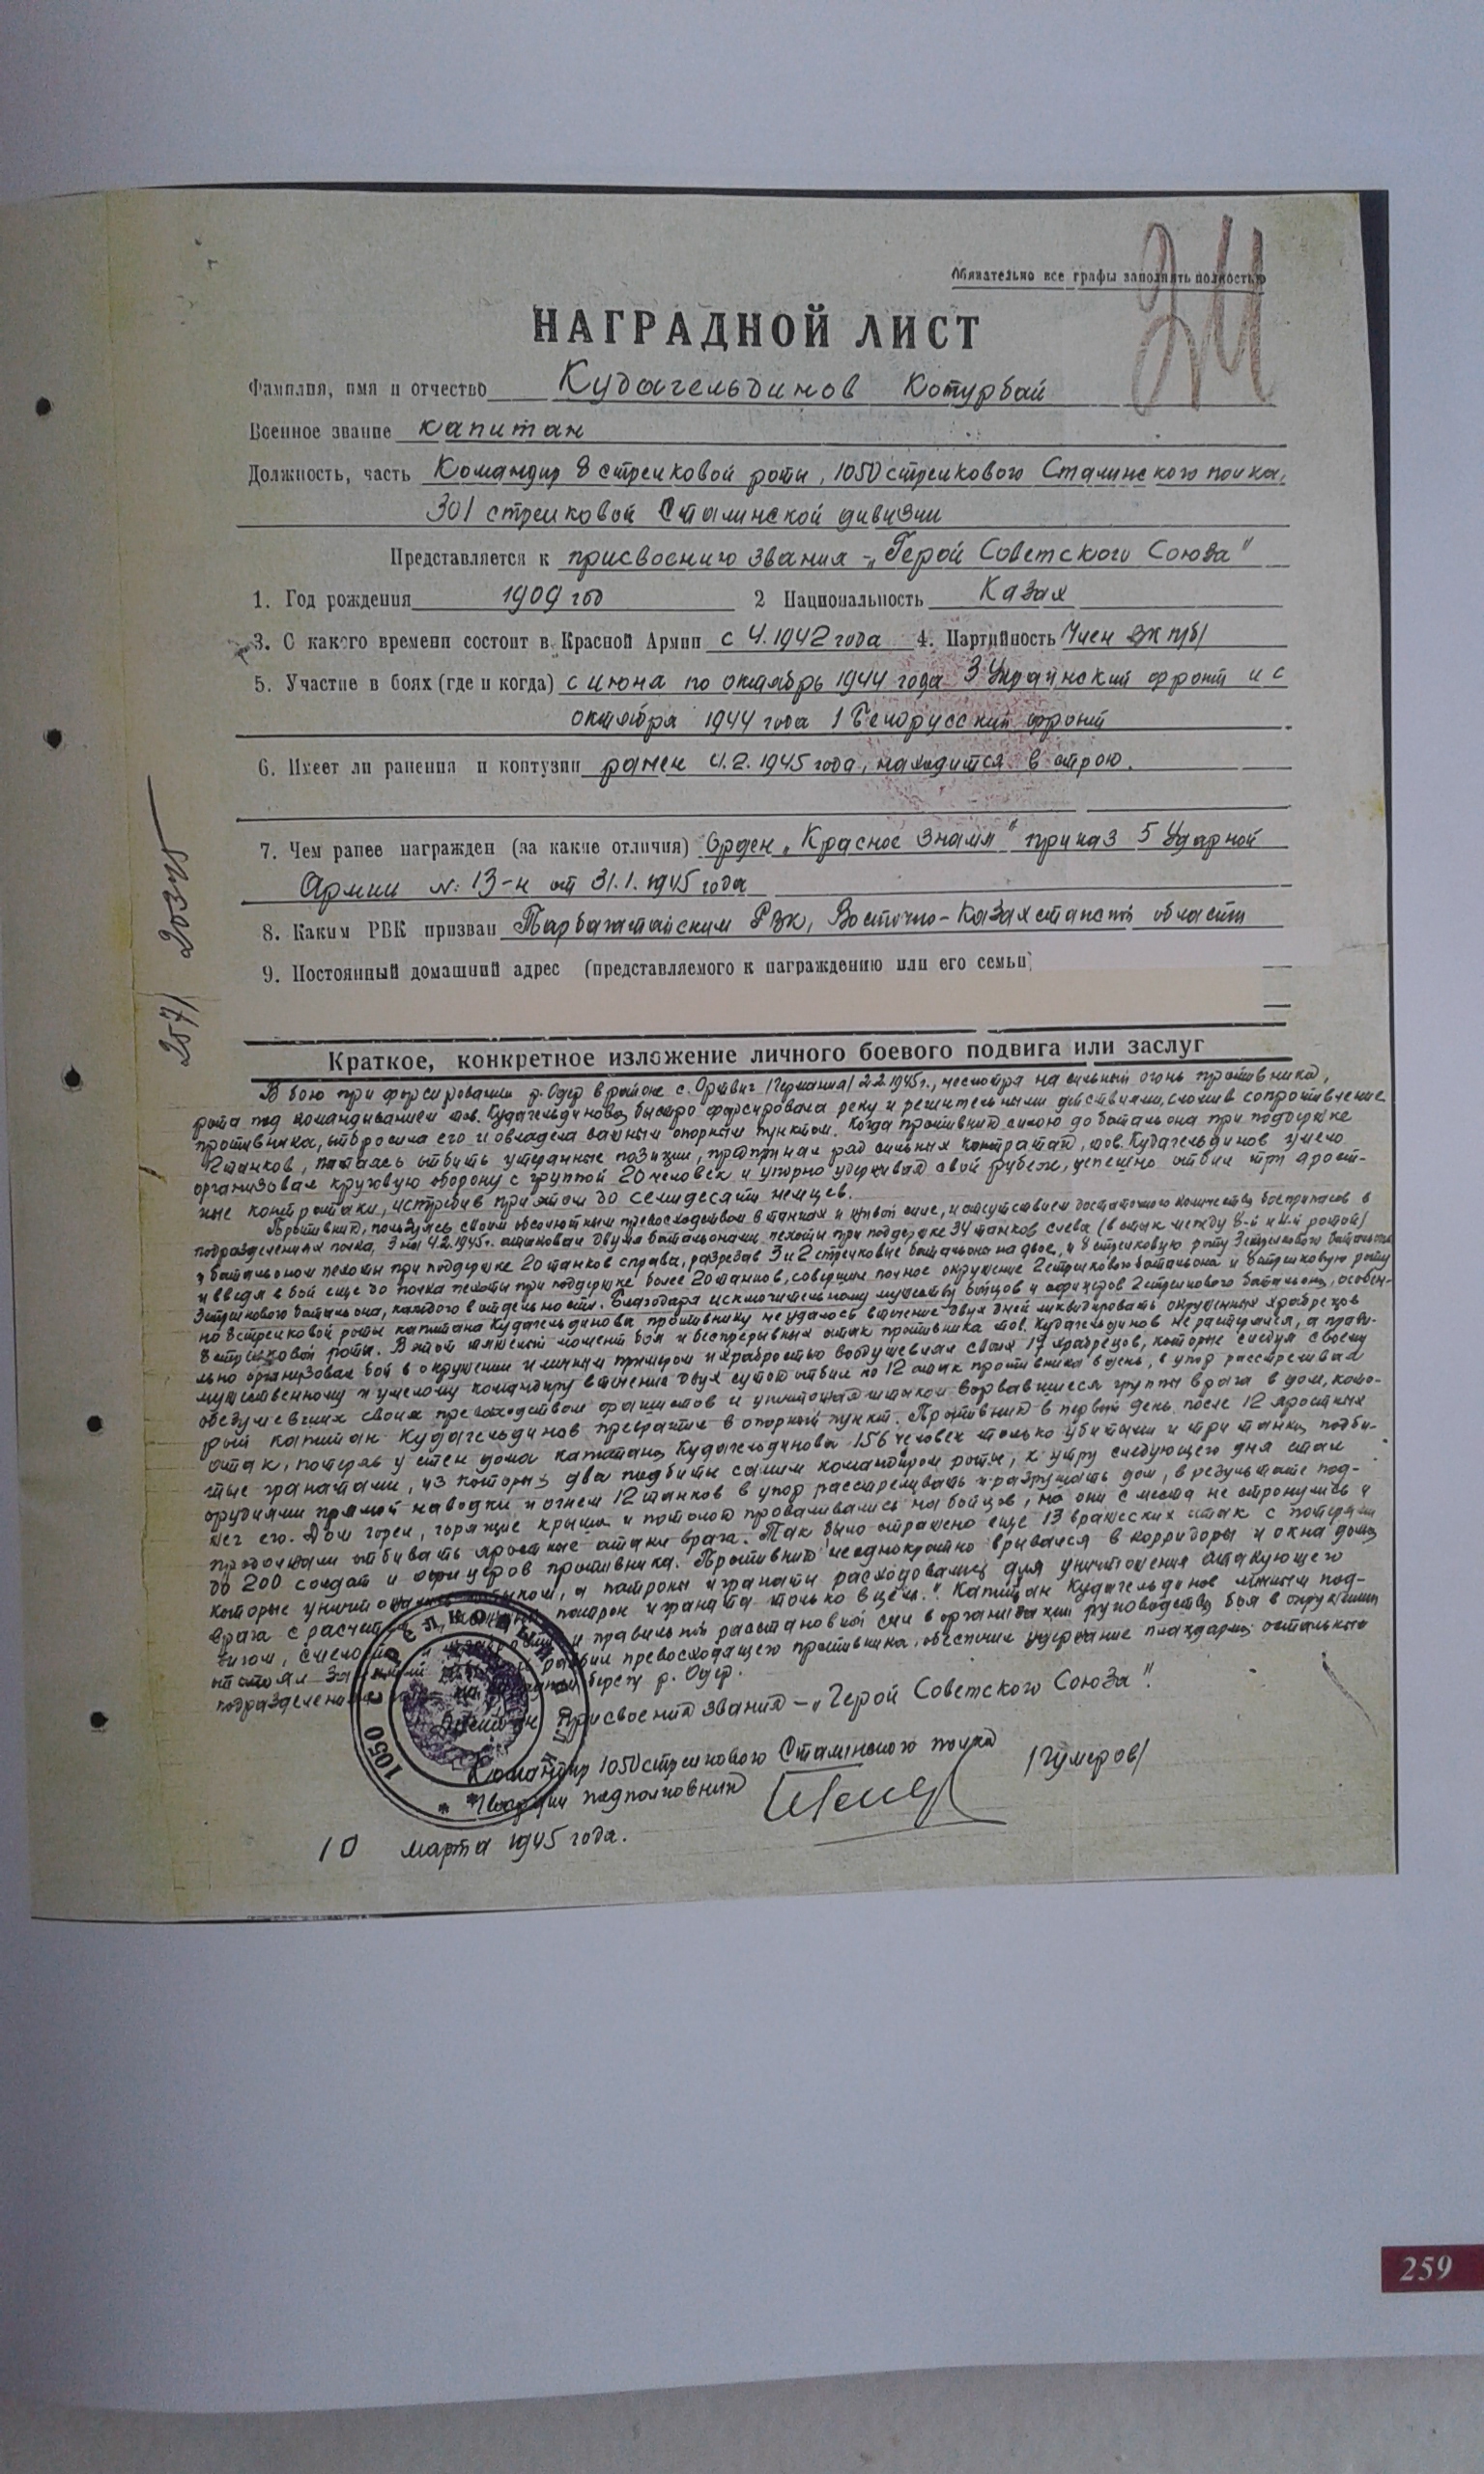 Обязательно все графы заполнять полностью
НАГРАДНОЙ ЛИСТ
Фамилия, имя и отчество Кудагельдинов Котурбай
Военное звание капитан
Должность, часть Командир 8 стрелковой роты, 1050 стрелкового Сталинского полка,
301 стрелковой Сталинской дивизии
Представляется к присвоению звания – „Герой Советского Союза"
1. Год рождения 1909 год 2 Национальность Казах
3. С какого времени состоит в Красной Армии с 4.1942 года 4. Партийность Член ВКП/б/
5. Участие в боях (где и когда) с июня по октябрь 1944 года 3 Украинский фронт и с
октября 1944 года 1 Белорусский фронт
6. Имеет ли ранения и контузии ранен 4.2.1945 года, находится в строю.
7. Чем ранее награжден (за какие отличия) Орден „Красное Знамя" приказ 5 Ударной
Армии №: 13-н от 31.1.1945 года
8. Каким РВК призван Тарбагатайским РВК, Восточно-Казахстанской области
9. Постоянный домашний адрес (представляемого к награждению или его семьи)
Краткое, конкретное изложение личного боевого подвига или заслуг
В бою при форсировании р. Одер в районе с. Ортвиг /Германия/ 2.2.1945г., несмотря на сильный огонь противника,
рота под командыванием тов. Кудагельдинова, быстро форсировала реку и решительными действиями, сломив сопротивление
противника, отбросила его и овладела важным опорным пунктом. Когда противник силою до батальона при поддержке
танков, пытаясь отбить утерянные позиции, предпринял ряд сильных контратак, тов. Кудагельдинов умело
организовал круговую оборону с группой 20 человек и упорно удерживая свой рубеж, успешно отбил три ярост-
ные контратаки, истребив при этом до семидесяти немцев.
Противник, пользуясь своим абсолютным превосходством в танках и живой силе, и отсутствием достаточного количества боеприпасов в
подразделениях полка, 3 на 4.2.1945г. атаковал двумя батальонами пехоты при поддержке 34 танков слева (в стык между 8-й и 4-й ротой)
и батальоном пехоты при поддержке 20 танков справа, разрезав 3 и 2 стрелковые батальона на двое, и 8 стрелковую роту 3 стрелкового батальона
и введя в бой еще до полка пехоты при поддержке более 20 танков, совершил полное окружение 2 стрелкового батальона и 8 стрелковую роту
3 стрелкового батальона, каждого в отдельности. Благодаря исключительному мужеству бойцов и офицеров 2 стрелкового батальона, особен-
но 8 стрелковой роты капитана Кудагельдинова противнику не удалось в течение двух дней ликвидировать окруженных храбрецов
8 стрелковой роты. В этот тяжелый момент боя и беспрерывных атак противника тов. Кудагельдинов не растерялся, а прави-
льно организовал бой в окружении и личным примером и храбростью воодушевлял своих 17 храбрецов, которые следуя своему
мужественному и умелому командиру в течение двух суток отбили по 12 атак противника в день, в упор расстреливая
обезумевших своим превосходством фашистов и уничтожая штыком ворвавшиеся группы врага в дом, кото-
рый капитан Кудагельдинов превратил в опорный пункт. Противник в первый день после 12 яростных
атак, потеряв у стен дома капитана Кудагельдинова 156 человек только убитыми и три танка, подби-
тые гранатами, из которых два подбиты самим командиром роты, к утру следующего дня стал
орудиями прямой наводки и огнем 12 танков в упор расстреливать и разрушать дом, в результате под-
жег его. Дом горел, горящие крыша и потолок проваливались на бойцов, но они с места не стронулись и
продолжали отбивать яростные атаки врага. Так было отражено еще 13 вражеских атак с потерями
до 200 солдат и офицеров противника. Противник неоднократно врывался в корридоры и окна дома,
которые уничтожались штыком, а патроны и гранаты расходовались для уничтожения атакующего
врага с расчетом патрон и граната только в цель." Капитан Кудагельдинов личным под-
вигом, смелой и правильной расстановкой сил в организации руководства боя в окружении
отстоял превосходящего противника, обеспечил удержание плацдарма остальным
подразделениям на берегу р. Одер.
Достоин присвоения звания – „Герой Советского Союза".
Командир 1050 стрелкового Сталинского полка
Гвардии подполковник /Гумеров/
10 марта 1945 года.
1050 СТРЕЛКОВЫЙ
259